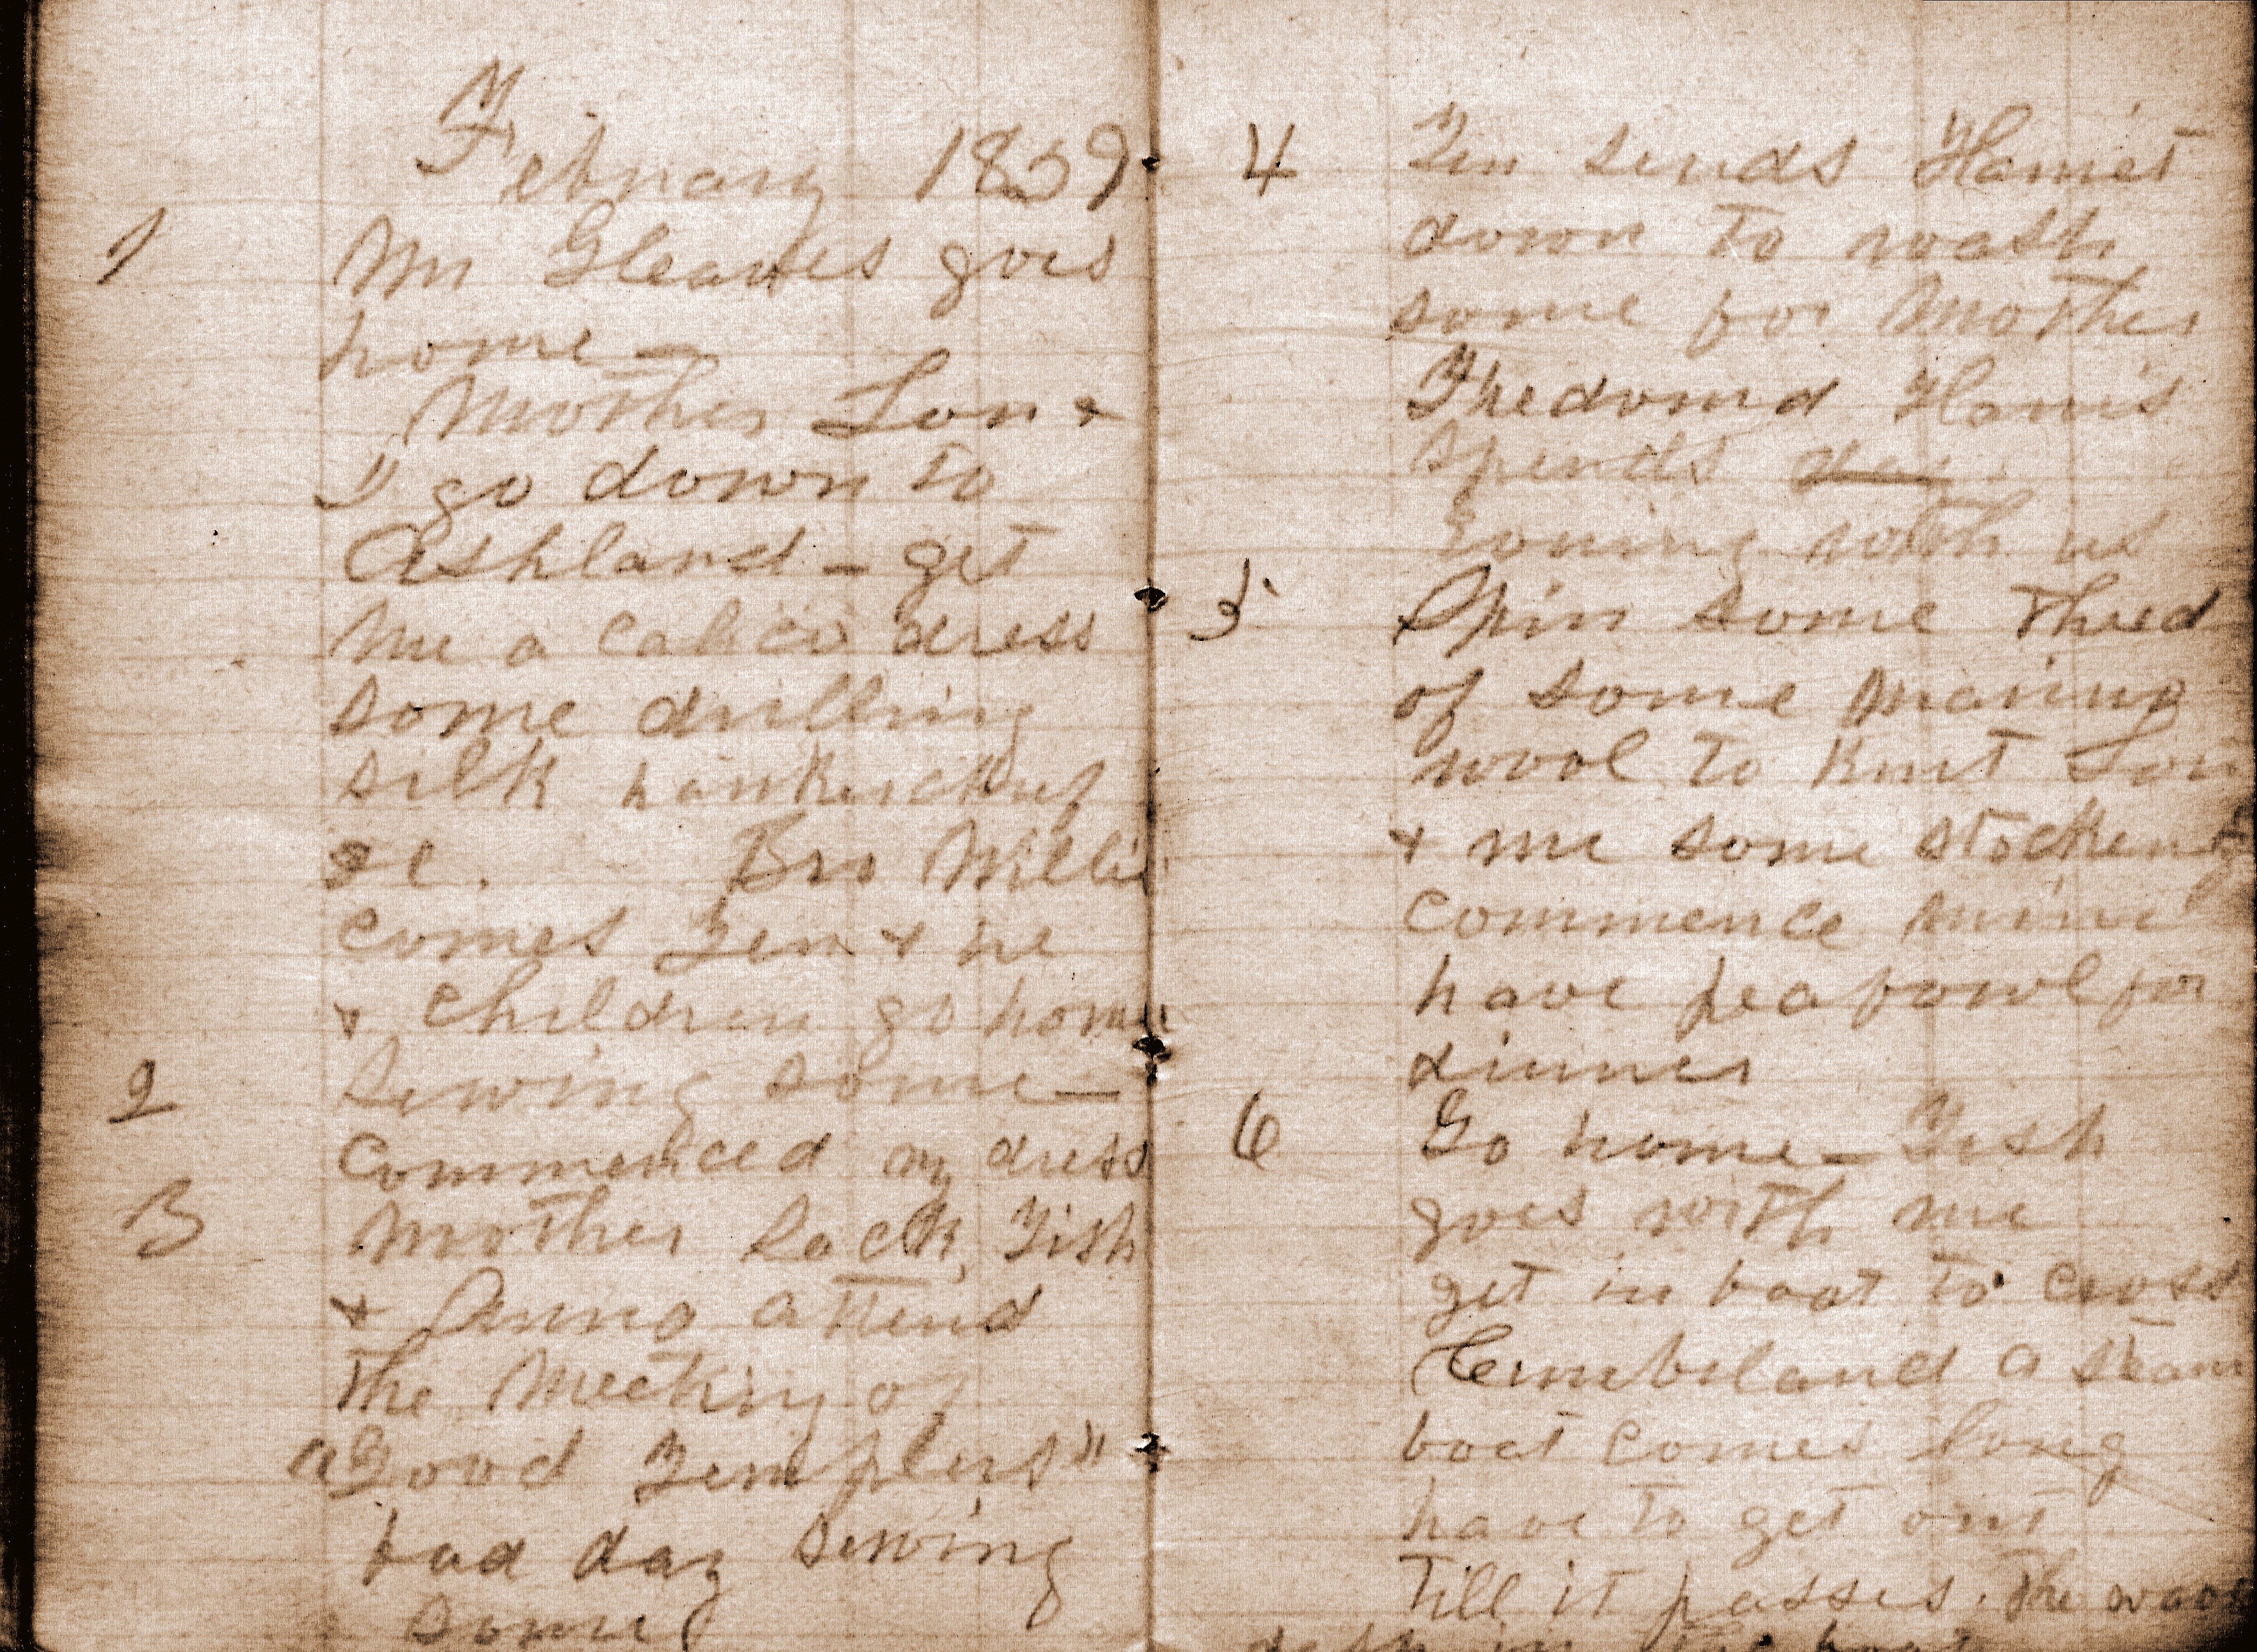 February 1859
1 Mr Gleaves goes
home —
Mother Lou &
I go down to
Ashland — get
me a calico dress
some drilling
silk hankerchief
&c. Bro Willis
comes Ten & he
& children go home
2 Sewing some —
commenced my dress
3 Mother Lack, Tish
& Anna attend
the Meeting of
"Good Templers"
bad day sewing
some
4 Ten sends Harriet
down to wash
some for Mother
Thedomd Harris
spends day
evening with us
5 Spin some thred
of some marino
wool to knit Lou
& me some stockens
commence mine
have peafowl for
dinner
6 Go home — Tish
goes with me
get in boat to cross
Cumberland a steam
boat comes long
have to get out
till it passes. The waves
in the boat